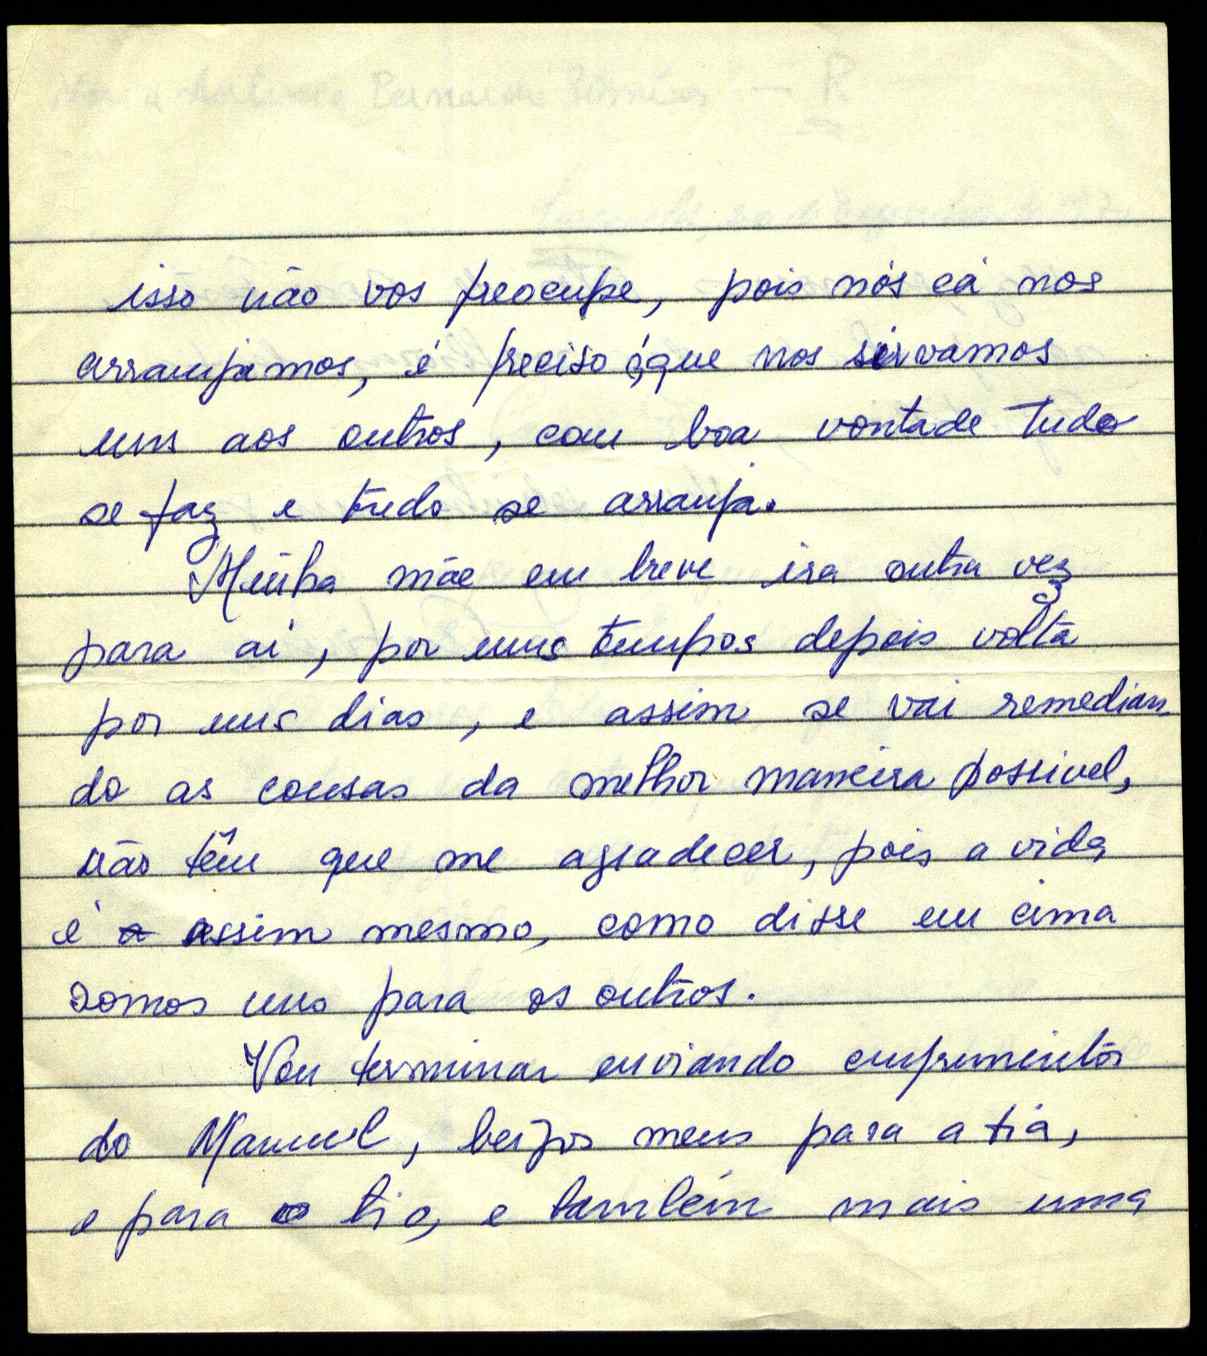 isso não vos preocupe, pois nós cá nos
arranjamos, é preciso é que nos sirvamos
uns aos outros, com boa vontade tudo
se faz e tudo se arranja.
Minha mãe em breve ira outra vez
para aí, por uns tempos depois volta
por uns dias, e assim se vai remedian
do as cousas da melhor maneira possivel,
não têm que me agradecer, pois a vida
é assim mesmo, como disse em cima
somos uns para os outros.
Vou terminar enviando cumprimentos
do Manuel, beijos meus para a tia,
e para o tio, e também mais uma